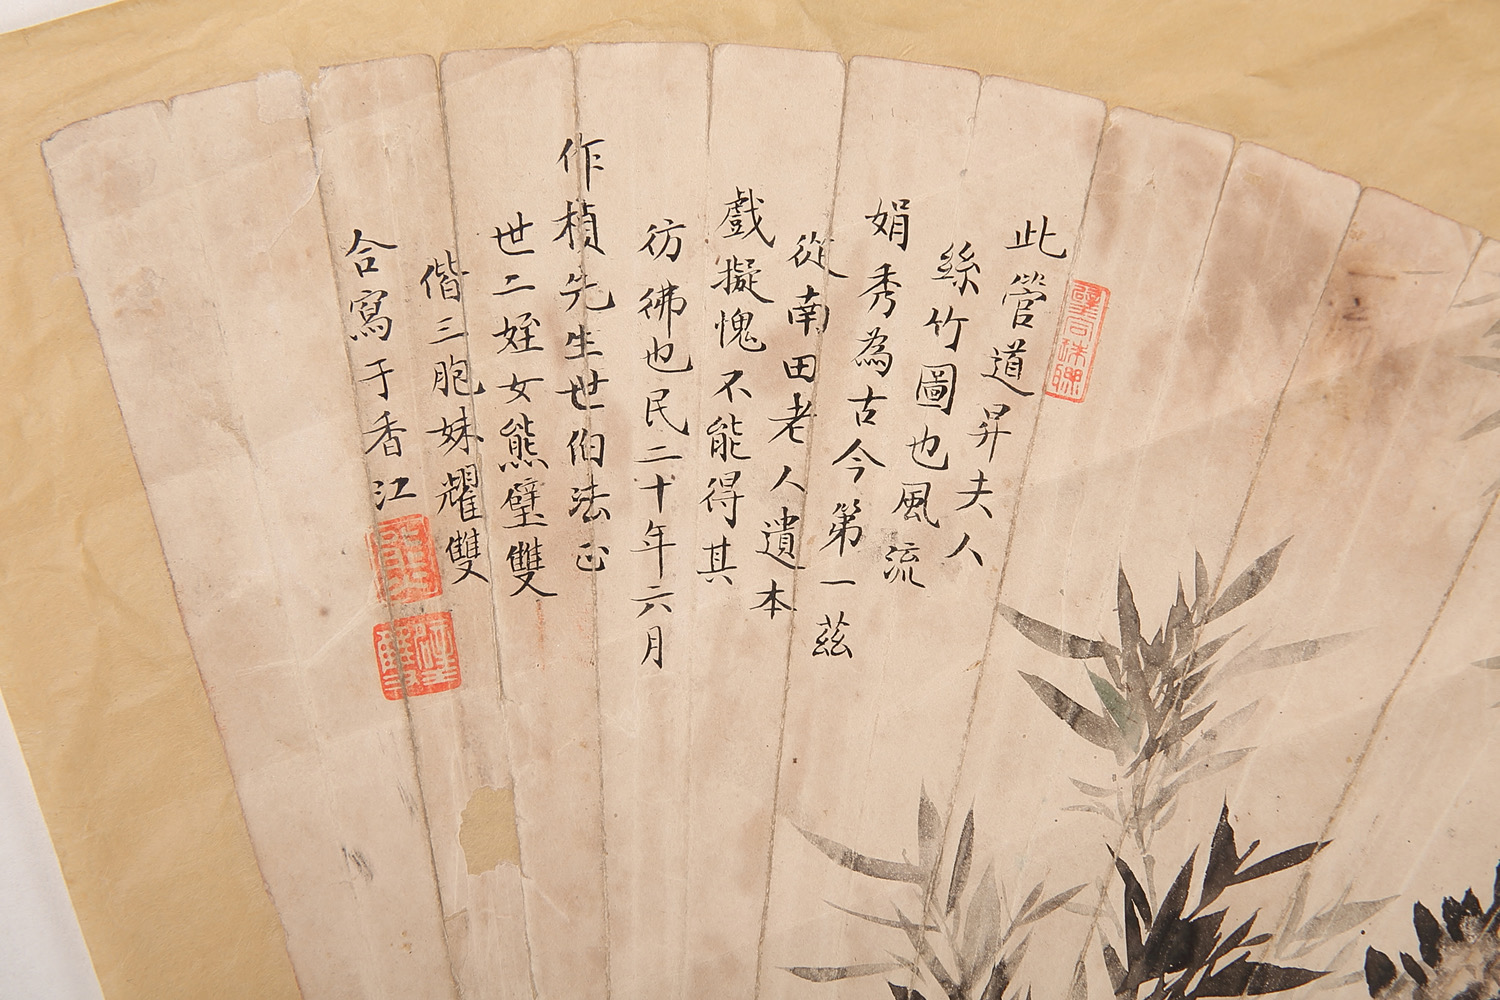 此管道昇夫人
絲竹圖也風流
娟秀為古今第一茲
從南田老人遺本
戲擬愧不能得其
彷彿也民二十年六月
作楨先生世伯法正
世二姪女熊璧雙
偕三胞妹耀雙
合寫于香江